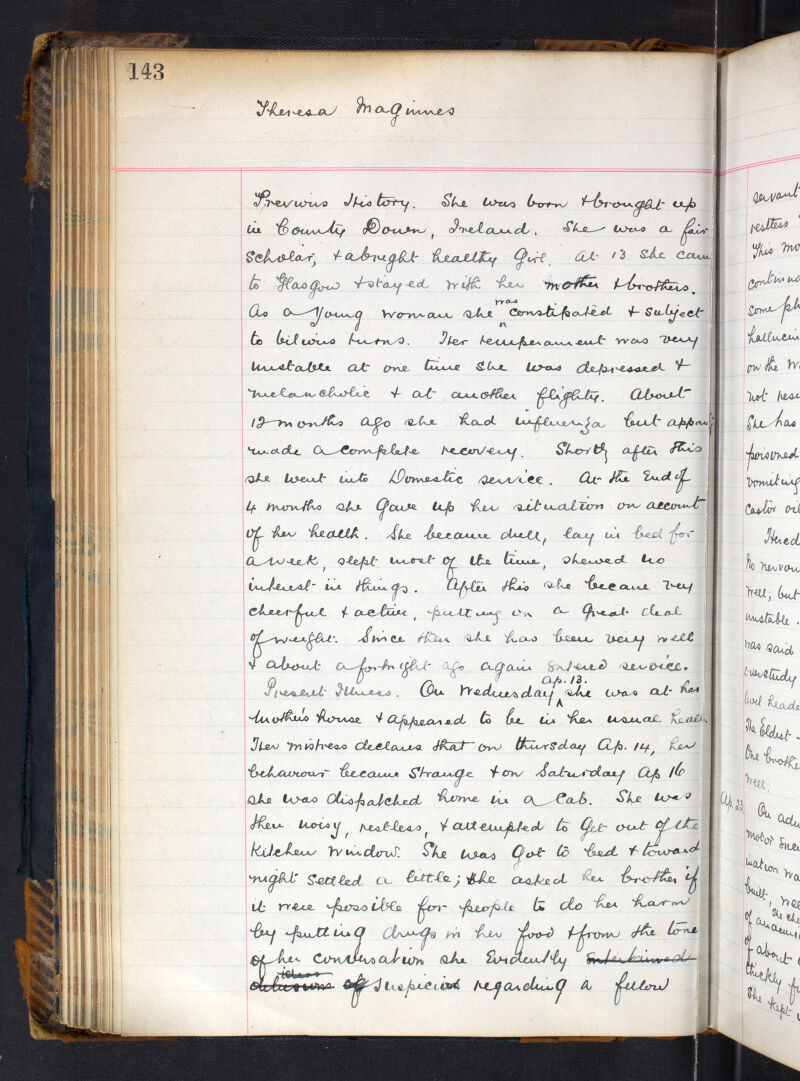 143
Theresa Maginnes
Previous History. She was born & brought up
in County Down, Ireland. She was a fair
Scholar, & a bright healthy Girl. At 13 she came
to Glasgow & stayed with her mother & brothers.
As a Young woman she was constipated & subject
to bilious turns. Her temperament was very
unstable at one time she was depressed &
melancholic & at another flighty. About
12 months ago she had influenza but
made a complete recovery. Shortly after this
she went into Domestic service. At the End of
4 months she Gave up her situation on account
of her health. She became dull, lay in bed for
a week, slept most of the time, shewed no
interest in things. After this she became very
cheerful & active, putting on a Great deal
of weight. Since then she has been very well
& about a fortnight ago again Entered service.
Present Illness. On Wednesday Ap. 13. she was at her
Mother's house & appeared to be in her usual health.
Her mistress declares that on thursday Ap. 14, her
behaviour became strange & on Saturday Ap 16
she was dispatched home in a Cab. She was
then noisy, restless, & attempted to Get out of the
Kitchen window. She was Got to bed & toward
night settled a little; she asked her brother if
it were possible for people to do her harm
by putting drugs in her food & from the tone
of her conversation she Evidently entertained
ideas
delusions of suspicion regarding a fellow
servant
restless
This
some
on the
not
She has
poisoned
vomiting
Castor oil
No nervous
well; but
unstable.
was said
overstudy
The Eldest -
One brother
well.
Ap. 23. On
motor
built,
of about
thickly
She kept